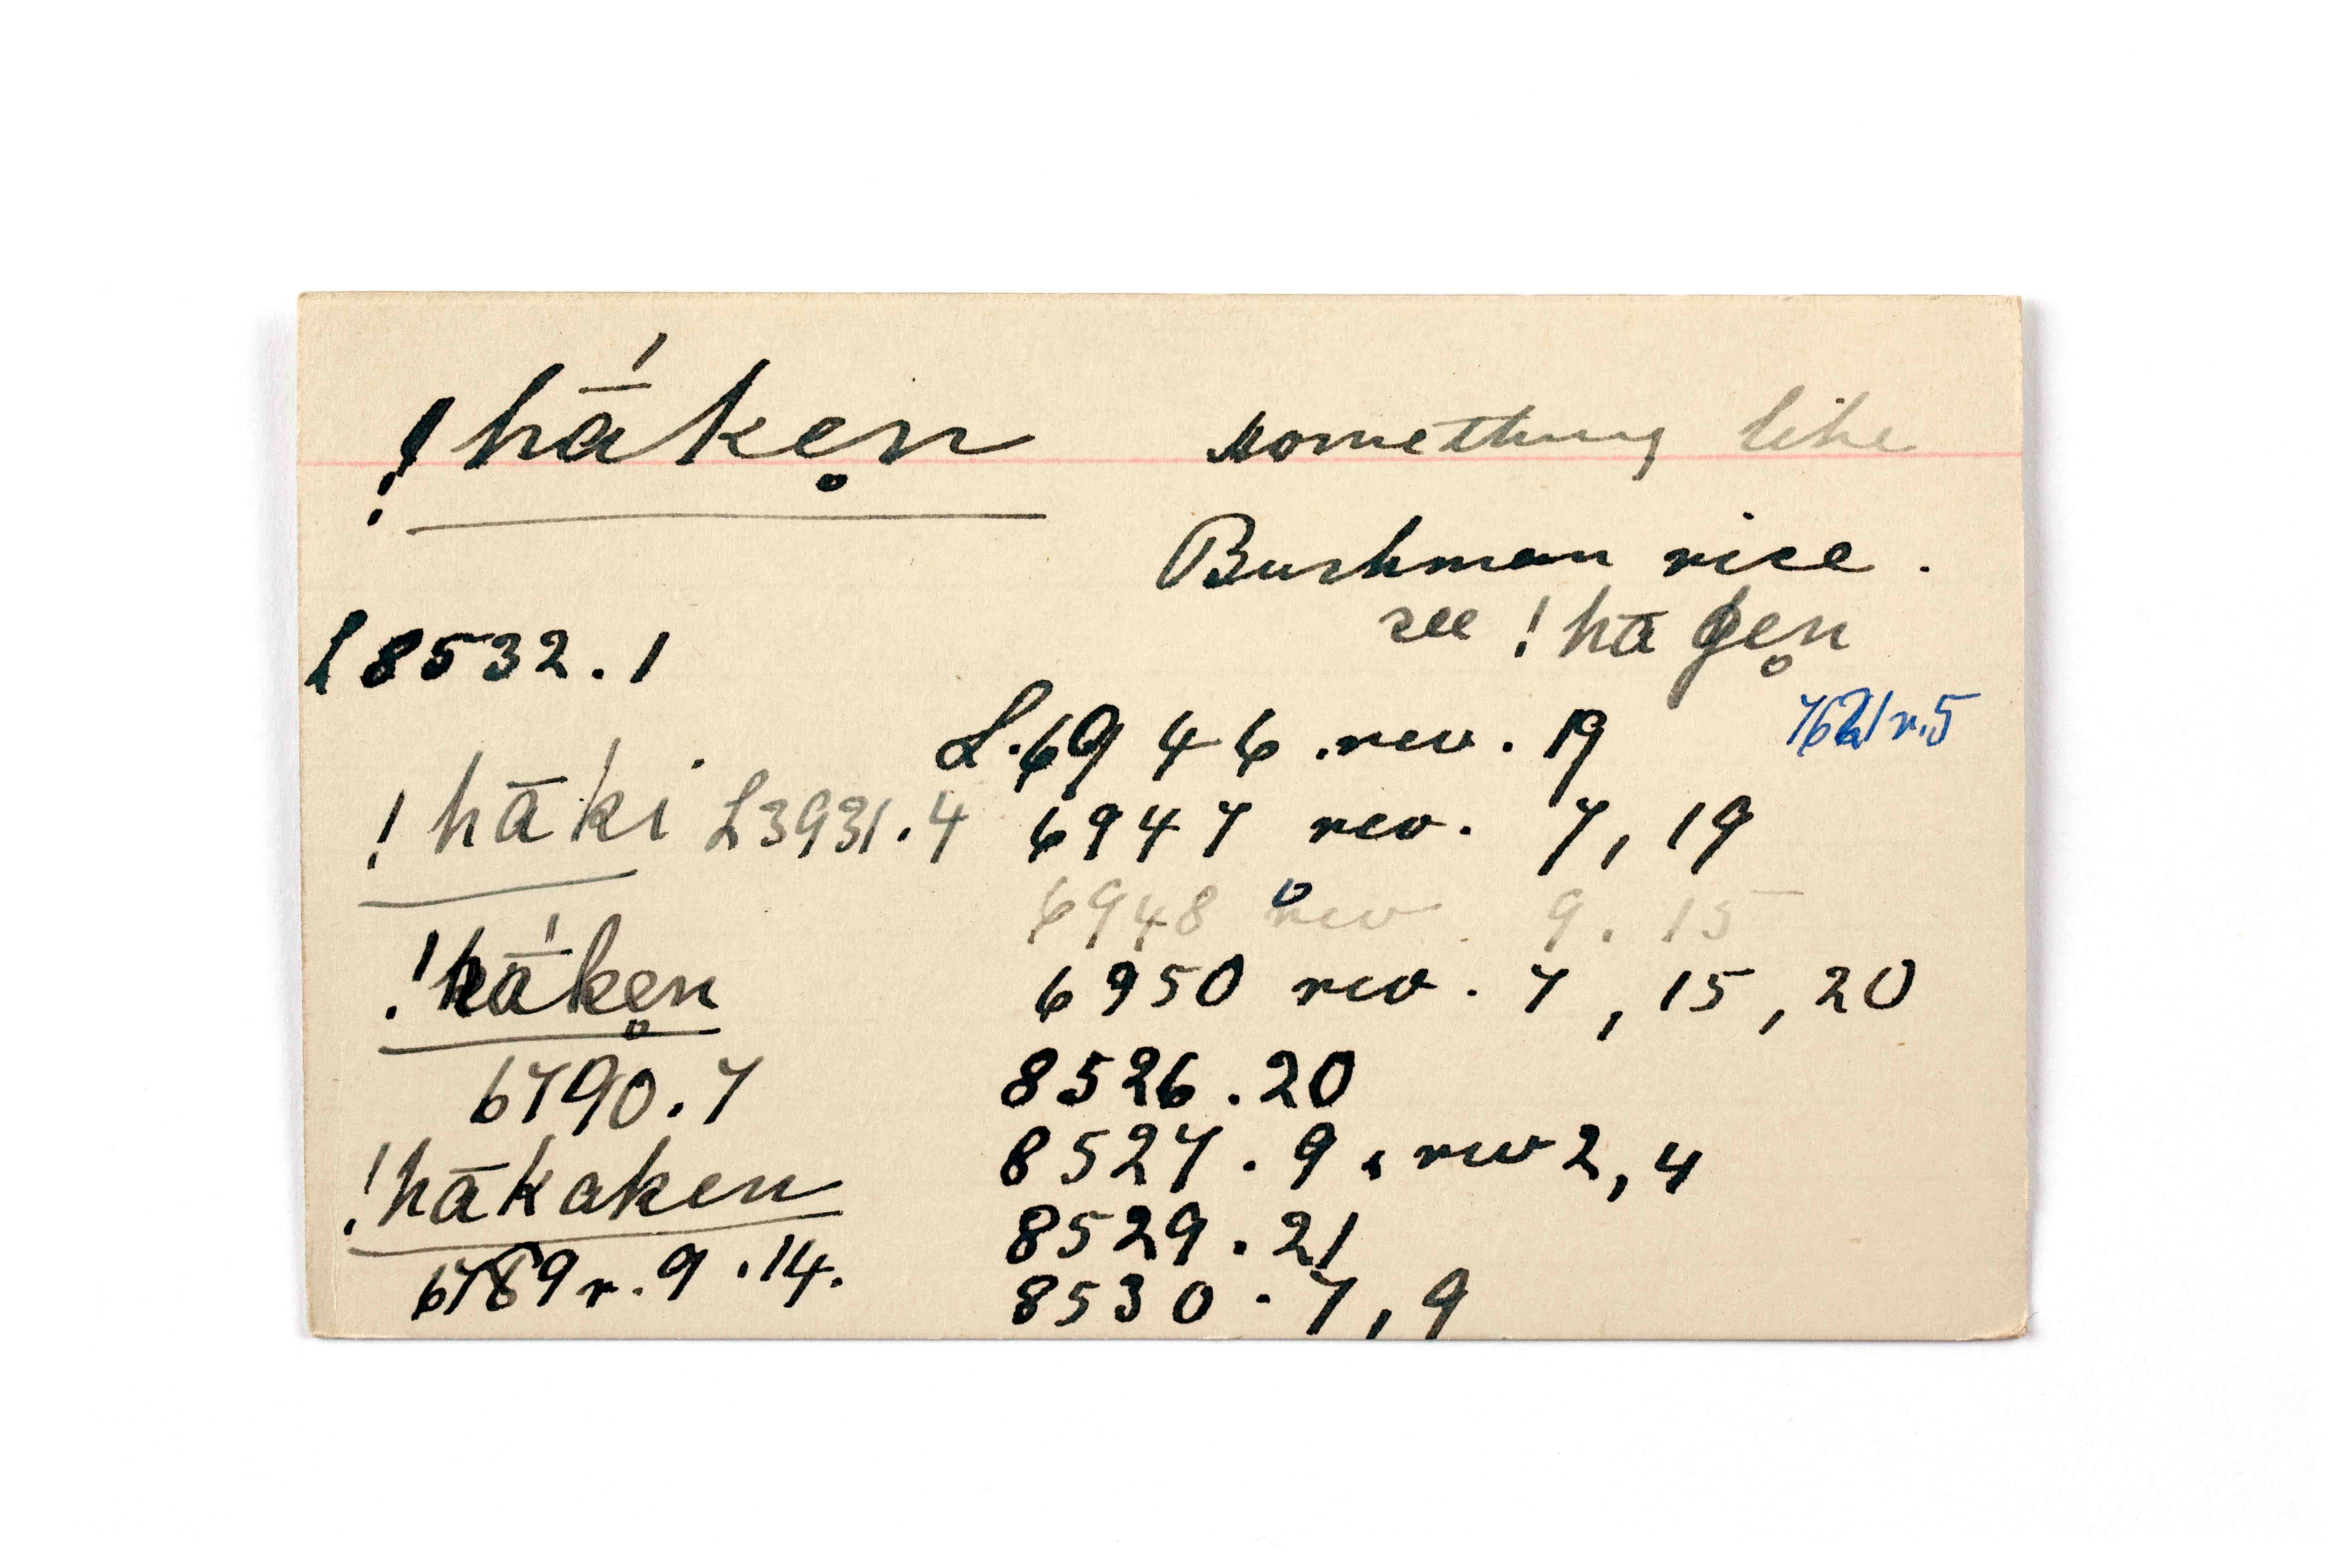 !hā́ke̥n something like
Bushman rice.
see !hāge̥n
L 8532.1
L. 6946. rev. 19
!hāki L3931.4 6947 rev. 7, 19
6948 rev. 9. 15
!hā́ke̥n
6950 rev. 7, 15, 20
6790.7
8526.20
!hākaken
8527.9, rev 2, 4
8529.21
6789 r. 9.14.
8530.7, 9